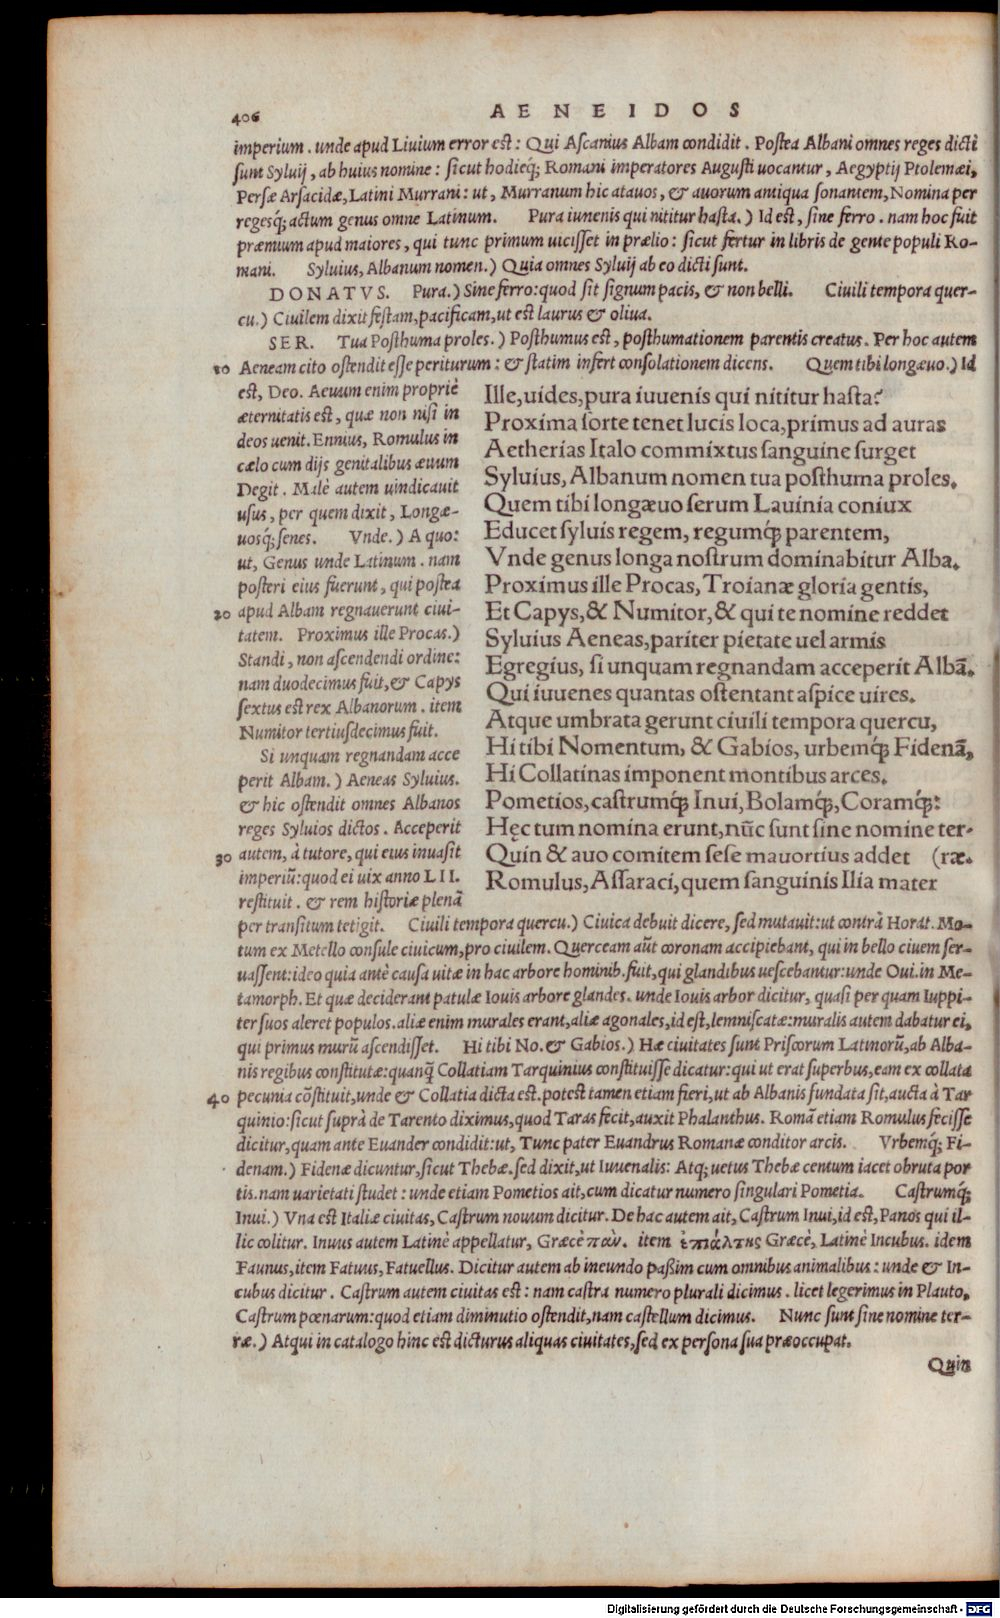 406 AENEIDOS
imperium. unde apud Liuium error est: Qui Ascanius Albam condidit. Postea Albani omnes reges dicti
sunt Syluij, ab huius nomine: sicut hodieq́; Romani imperatores Augusti uocantur, Aegyptij Ptolemæi,
Persæ Arsacidæ, Latini Murrani: ut, Murranum hic atauos, & auorum antiqua sonantem, Nomina per
regesq́; actum genus omne Latinum. Pura iuuenis qui nititur hasta.) Id est, sine ferro. nam hoc fuit
præmium apud maiores, qui tunc primum uicisset in prælio: sicut fertur in libris de gente populi Ro-
mani. Syluius, Albanum nomen.) Quia omnes Syluij ab eo dicti sunt.
DONATVS. Pura.) Sine ferro: quod sit signum pacis, & non belli. Ciuili tempora quer-
cu.) Ciuilem dixit festam, pacificam, ut est laurus & oliua.
SER. Tua Posthuma proles.) Posthumus est, posthumationem parentis creatus. Per hoc autem
10 Aeneam cito ostendit esse periturum: & statim infert consolationem dicens. Quem tibi longæuo.) Id
est, Deo. Aeuum enim propriè
æternitatis est, quæ non nisi in
deos uenit. Ennius, Romulus in
cælo cum dijs genitalibus æuum
Degit. Malè autem uindicauit
usus, per quem dixit, Longæ-
uosq́; senes. Vnde.) A quo:
ut, Genus unde Latinum. nam
posteri eius fuerunt, qui postea
20 apud Albam regnauerunt ciui-
tatem. Proximus ille Procas.)
Standi, non ascendendi ordine:
nam duodecimus fuit, & Capys
sextus est rex Albanorum. item
Numitor tertiusdecimus fuit.
Si unquam regnandam acce
perit Albam.) Aeneas Syluius.
& hic ostendit omnes Albanos
reges Syluios dictos. Acceperit
30 autem, à tutore, qui eius inuasit
imperiũ: quod ei uix anno LII.
restituit. & rem historiæ plenã
Ille, uides, pura iuuenis qui nititur hasta?
Proxima sorte tenet lucis loca, primus ad auras
Aetherias Italo commixtus sanguine surget
Syluius, Albanum nomen tua posthuma proles.
Quem tibi longæuo serum Lauinia coniux
Educet syluis regem, regumq́; parentem,
Vnde genus longa nostrum dominabitur Alba.
Proximus ille Procas, Troianæ gloria gentis,
Et Capys, & Numitor, & qui te nomine reddet
Syluius Aeneas, pariter pietate uel armis
Egregius, si unquam regnandam acceperit Albã.
Qui iuuenes quantas ostentant aspice uires.
Atque umbrata gerunt ciuili tempora quercu,
Hi tibi Nomentum, & Gabios, urbemq́; Fidenã,
Hi Collatinas imponent montibus arces.
Pometios, castrumq́; Inui, Bolamq́;, Coramq́;:
Hęc tum nomina erunt, nũc sunt sine nomine ter-
Quin & auo comitem sese mauortius addet (ræ.
Romulus, Assaraci, quem sanguinis Ilia mater
per transitum tetigit. Ciuili tempora quercu.) Ciuica debuit dicere, sed mutauit: ut contrà Horat. Mo-
tum ex Metello consule ciuicum, pro ciuilem. Querceam aũt coronam accipiebant, qui in bello ciuem ser-
uassent: ideo quia antè causa uitæ in hac arbore hominib. fuit, qui glandibus uescebantur: unde Oui. in Me-
tamorph. Et quæ deciderant patulæ Iouis arbore glandes. unde Iouis arbor dicitur, quasi per quam Iuppi-
ter suos aleret populos. aliæ enim murales erant, aliæ agonales, id est, lemniscatæ: muralis autem dabatur ei,
qui primus murũ ascendisset. Hi tibi No. & Gabios.) Hæ ciuitates sunt Priscorum Latinorũ, ab Alba-
nis regibus constitutæ: quanq̃ Collatiam Tarquinius constituisse dicatur: qui ut erat superbus, eam ex collata
40 pecunia cõstituit, unde & Collatia dicta est. potest tamen etiam fieri, ut ab Albanis fundata sit, aucta à Tar
quinio: sicut suprà de Tarento diximus, quod Taras fecit, auxit Phalanthus. Romã etiam Romulus fecisse
dicitur, quam ante Euander condidit: ut, Tunc pater Euandrus Romanæ conditor arcis. Vrbemq́; Fi-
denam.) Fidenæ dicuntur, sicut Thebæ. sed dixit, ut Iuuenalis: Atq; uetus Thebæ centum iacet obruta por
tis. nam uarietati studet: unde etiam Pometios ait, cum dicatur numero singulari Pometia. Castrumq́;
Inui.) Vna est Italiæ ciuitas, Castrum nouum dicitur. De hac autem ait, Castrum Inui, id est, Panos qui il-
lic colitur. Inuus autem Latinè appellatur, Græcè πὰν. item ἐπιάλτης Græcè, Latinè Incubus. idem
Faunus, item Fatuus, Fatuellus. Dicitur autem ab ineundo paßim cum omnibus animalibus: unde & In-
cubus dicitur. Castrum autem ciuitas est: nam castra numero plurali dicimus. licet legerimus in Plauto,
Castrum pœnarum: quod etiam diminutio ostendit, nam castellum dicimus. Nunc sunt sine nomine ter-
ræ.) Atqui in catalogo hinc est dicturus aliquas ciuitates, sed ex persona sua præoccupat.
Quin
Digitalisierung gefördert durch die Deutsche Forschungsgemeinschaft - DFG